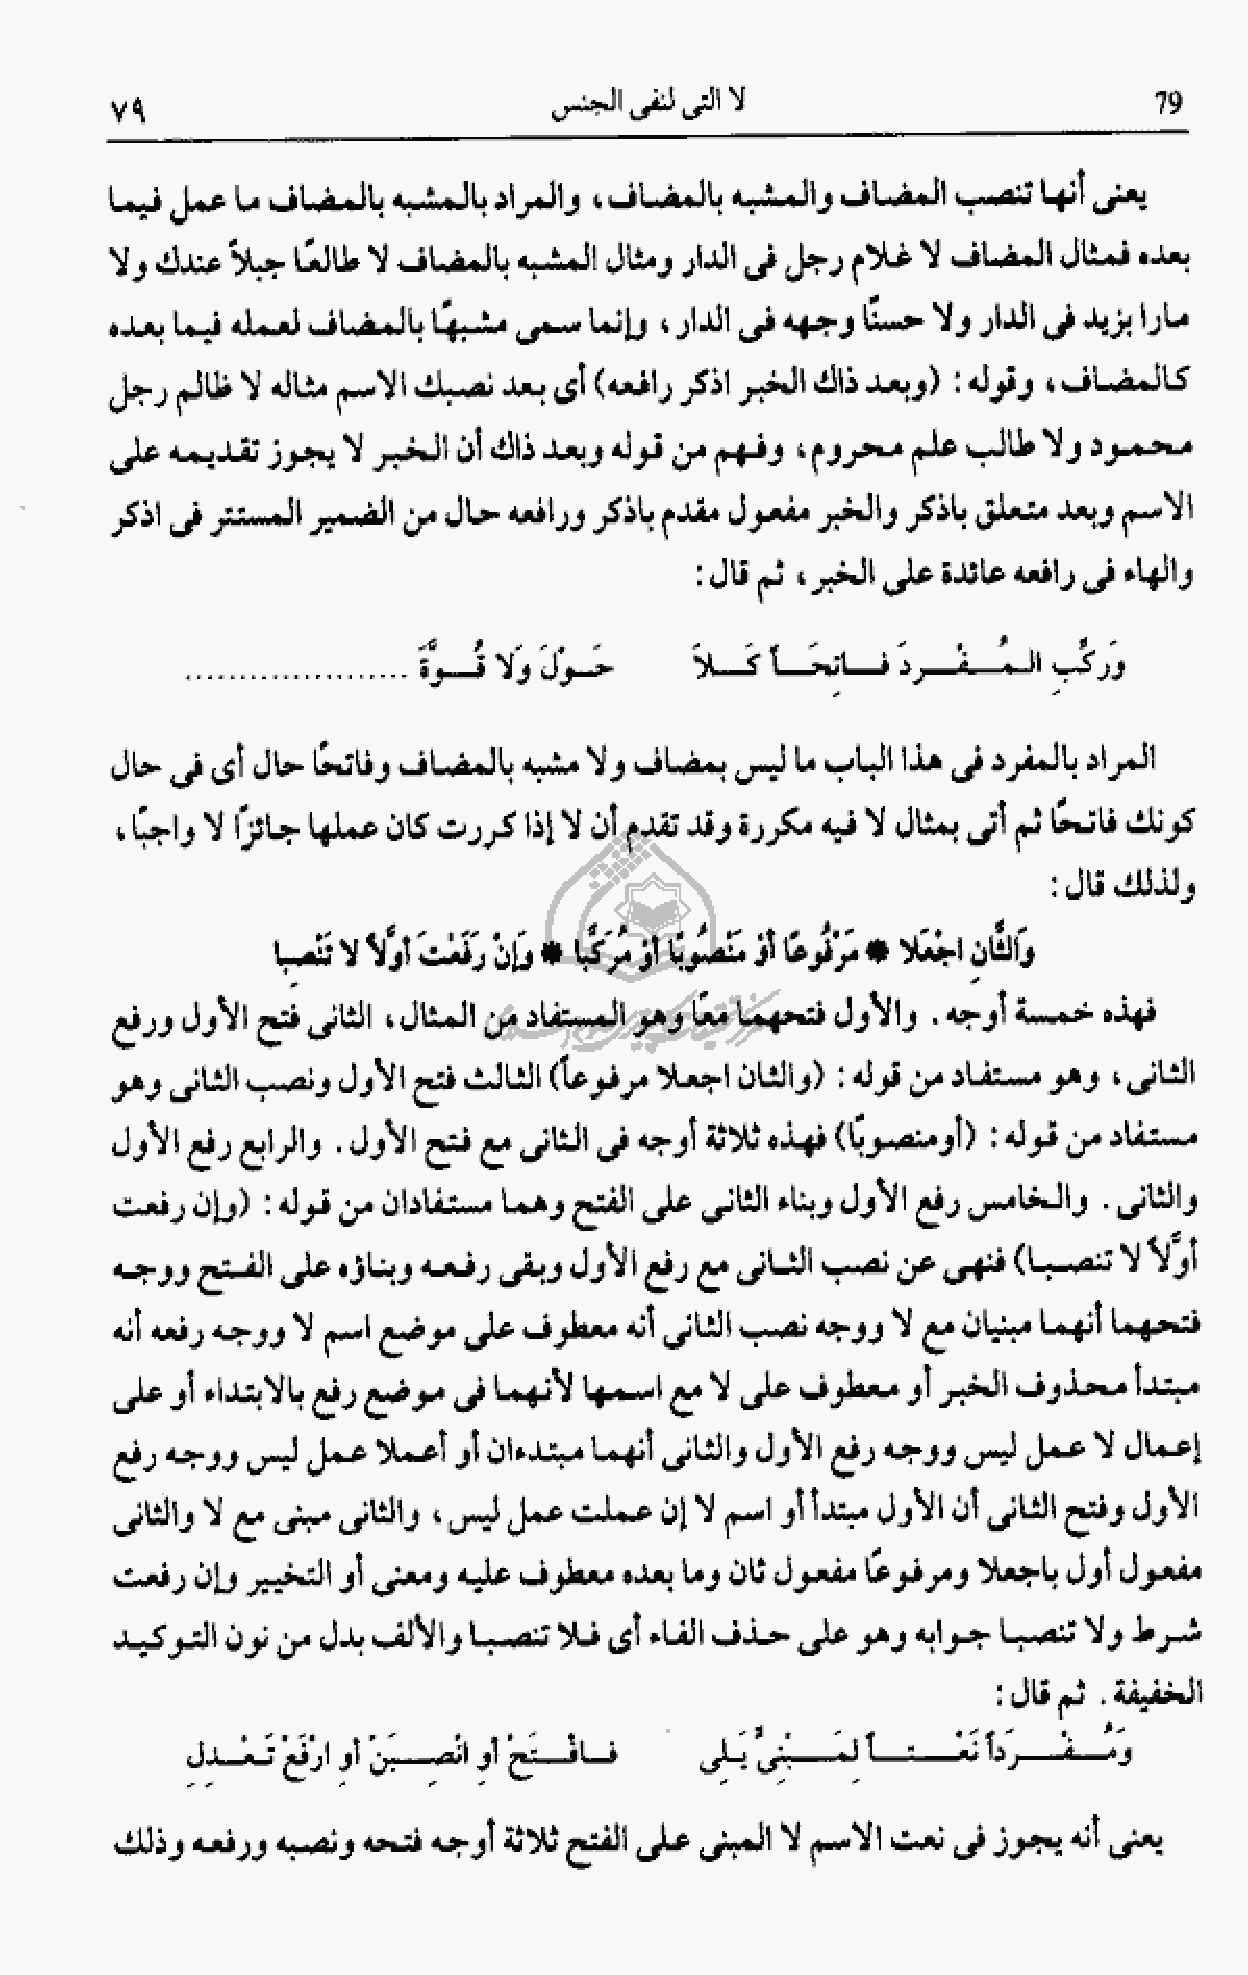 79 لا التى لنفى الجنس ٧٩
يعنى أنها تنصب المضاف والمشبه بالمضاف ، والمراد بالمشبه بالمضاف ما عمل فيما
بعده فمثال المضاف لا غلام رجل فى الدار ومثال المشبه بالمضاف لا طالعًا جبلاً عندك ولا
مارا بزيد فى الدار ولا حسنًا وجهه فى الدار ، وإنما سمى مشبهًا بالمضاف لعمله فيما بعده
كالمضاف ، وقوله : (وبعد ذاك الخبر اذكر رافعه) أى بعد نصبك الاسم مثاله لا ظالم رجل
محمود ولا طالب علم محروم ، وفهم من قوله وبعد ذاك أن الخبر لا يجوز تقديمه على
الاسم وبعد متعلق باذكر والخبر مفعول مقدم باذكر ورافعه حال من الضمير المستتر فى اذكر
والهاء فى رافعه عائدة على الخبر ، ثم قال :
وَرَكِّبِ المُفْرَدَ فَاتِحَاً كَلاَ حَوْلَ وَلاَ قُوَّةَ .....................
المراد بالمفرد فى هذا الباب ما ليس بمضاف ولا مشبه بالمضاف وفاتحًا حال أى فى حال
كونك فاتحًا ثم أتى بمثال لا فيه مكررة وقد تقدم أن لا إذا كررت كان عملها جائزًا لا واجبًا ،
ولذلك قال :
وَالثَّانِ اجْعَلا * مَرْفُوعًا أوْ مَنْصُوبًا أوْ مُرَكَّبا * وَإنْ رَفَعْتَ أوَّلاً لا تَنْصِبا
فهذه خمسة أوجه . والأول فتحهما معًا وهو المستفاد من المثال ، الثانى فتح الأول ورفع
الثانى ، وهو مستفاد من قوله : (والثان اجعلا مرفوعاً) الثالث فتح الأول ونصب الثانى وهو
مستفاد من قوله : (أومنصوبًا) فهذه ثلاثة أوجه فى الثانى مع فتح الأول . والرابع رفع الأول
والثانى . والخامس رفع الأول وبناء الثانى على الفتح وهما مستفادان من قوله : (وإن رفعت
أوَّلاً لا تنصبا) فنهى عن نصب الثانى مع رفع الأول وبقى رفعه وبناؤه على الفتح ووجه
فتحهما أنهما مبنيان مع لا ووجه نصب الثانى أنه معطوف على موضع اسم لا ووجه رفعه أنه
مبتدأ محذوف الخبر أو معطوف على لا مع اسمها لأنهما فى موضع رفع بالابتداء أو على
إعمال لا عمل ليس ووجه رفع الأول والثانى أنهما مبتدءان أو أعملا عمل ليس ووجه رفع
الأول وفتح الثانى أن الأول مبتدأ أو اسم لا إن عملت عمل ليس ، والثانى مبنى مع لا والثانى
مفعول أول باجعلا ومرفوعًا مفعول ثان وما بعده معطوف عليه ومعنى أو التخيير وإن رفعت
شرط ولا تنصبا جوابه وهو على حذف الفاء أى فلا تنصبا والألف بدل من نون التوكيد
الخفيفة . ثم قال :
وَمُفْرَداً نَعْتاً لِمَبْنِىٍّ يَلِى فَافْتَحْ أوِ انْصِبَنْ أوِ ارْفَعْ تَعْدِلِ
يعنى أنه يجوز فى نعت الاسم لا المبنى على الفتح ثلاثة أوجه فتحه ونصبه ورفعه وذلك